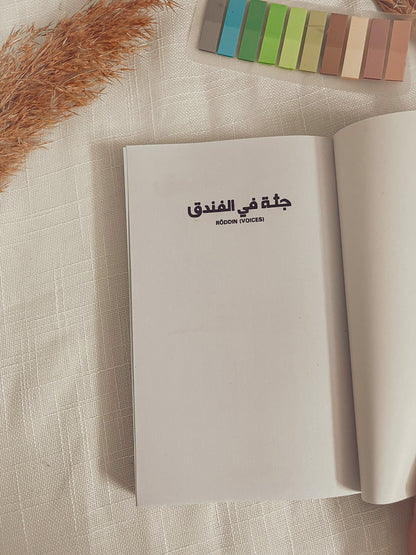 جثة في الفندق
RÖDDIN (VOICES)